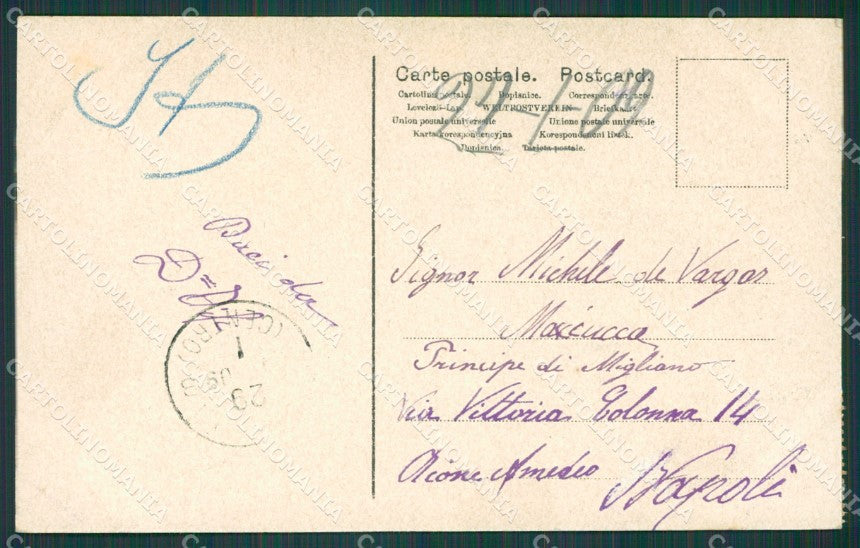 Carte postale. Postcard.
Cartolina postale. Dopisnice. Correspondenz-arte.
Levelezö-Lap. WELTPOSTVEREIN Briefkaart
Union postale universelle Unione postale universale
Karta korespondencyjna Korespondenèni listek.
Dopisnica. Tarjeta postale.
27-1-
Baci da
D=
(CENTRO)
1
29
09
Signor Michele de Vargas
Macciucca
Principe di Migliano
Via Vittoria Colonna 14
Rione Amedeo
Napoli
CARTOLINOMANIA